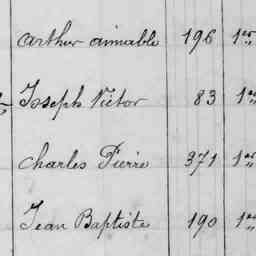 Arthur aimable 196 1er
Joseph Victor 83 1er
Charles Pierre 371 1er "
Jean Baptiste 190 1er "